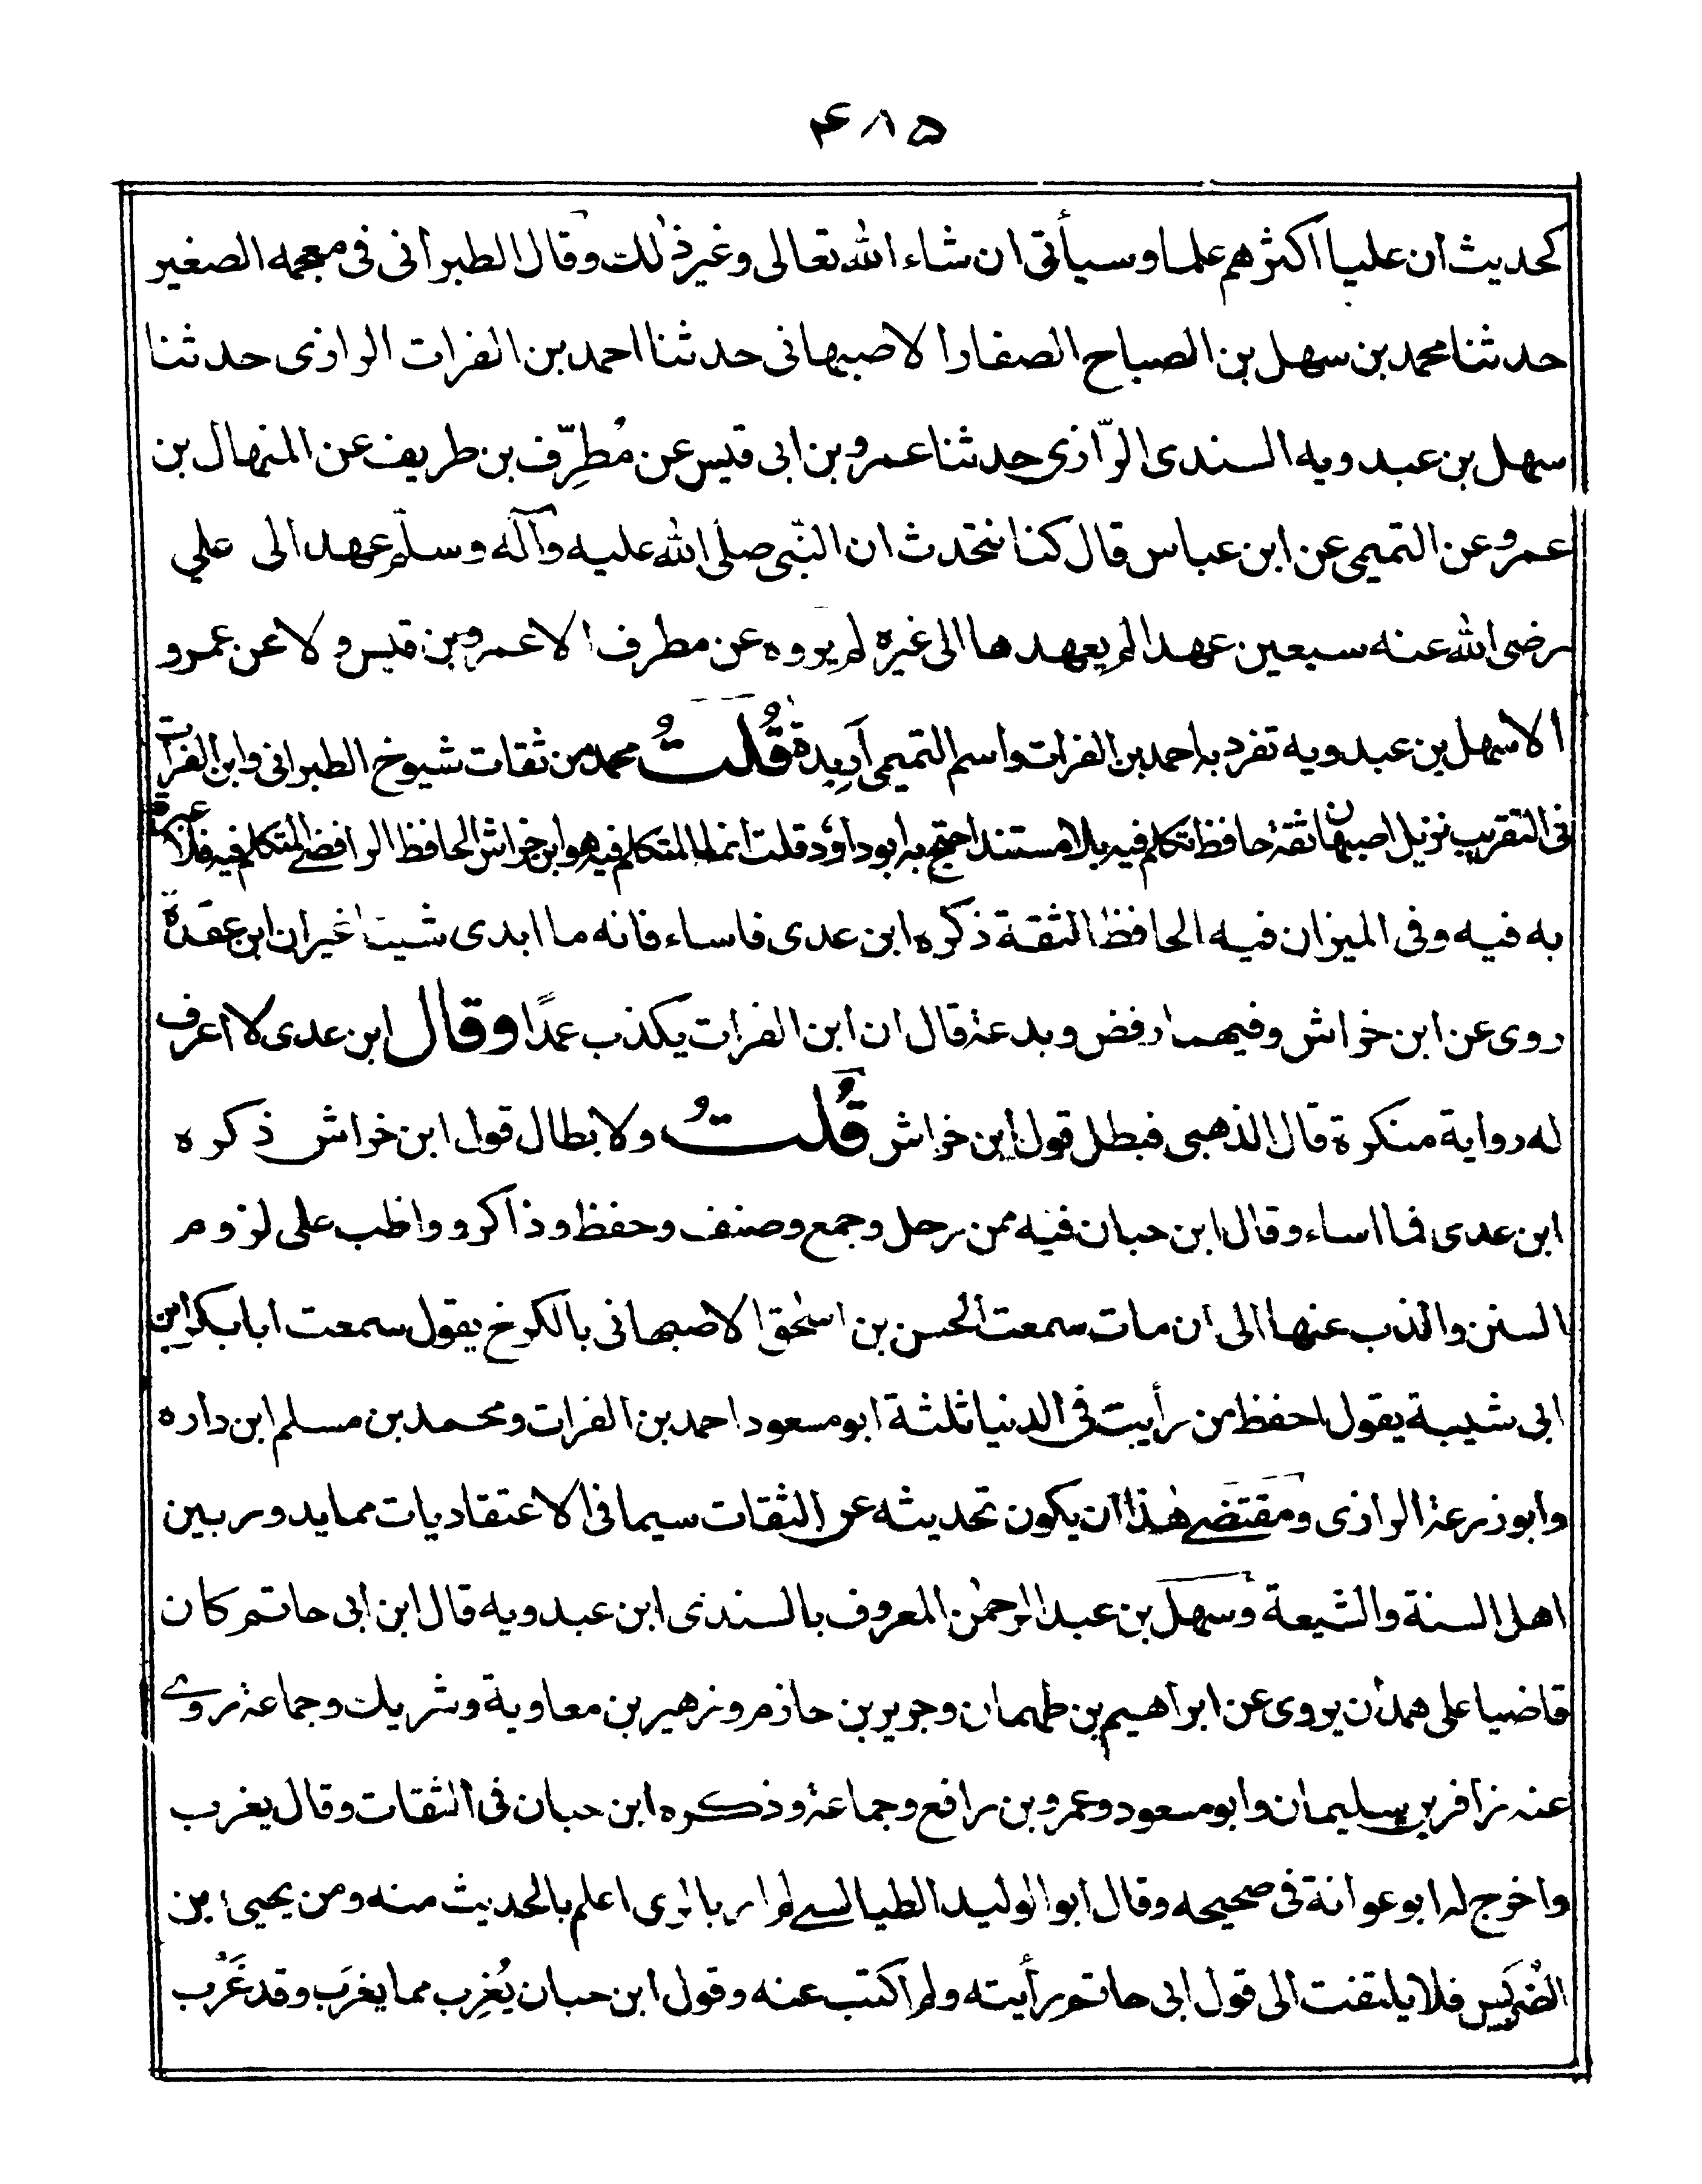 ۴۸۵
كحديث ان عليا اكثرهم علما وسيأتى ان شاء الله تعالى وغير ذٰلك وقال الطبرانى فى معجمه الصغير
حدثنا محمد بن سهل بن الصباح الصفار الاصبهانى حدثنا احمد بن الفرات الرازى حدثنا
سهل بن عبدويه السندى الرّازى حدثنا عمرو بن ابى قيس عن مُطرِّف بن طريف عن المنهال بن
عمرو عن التميمى عن ابن عباس قال كنا نتحدث ان النّبى صلى الله عليه وآله وسلّم عهد الى على
رضى الله عنه سبعين عهدا لم يعهدها الى غيره لم يروه عن مطرف الا عمرو بن قيس ولا عن عمرو
الا سهل بن عبدويه تفرد به احمد بن الفرات واسم التميمى اَربِدة قُلتُ محمد من ثقات شيوخ الطبرانى وابن الفرات
فى التقريب نزيل اصبهان ثقة حافظ تكلم فيه بلا مستند احتج به ابوداؤد قلت انما المتكلم فيه هو ابن خراش الحافظ الرافضے المتكلم فيه فلا عبرة
به فيه وفى الميزان فيه الحافظ الثقة ذكره ابن عدى فاساء فانه ما ابدى شيئا غير ان ابن عقدة
روى عن ابن خراش وفيهما رفض وبدعة قال ان ابن الفرات يكذب عمدًا وقال ابن عدى لا اعرف
له رواية منكرة قال الذهبى فبطل قول ابن خراش قُلتُ ولابطال قول ابن خراش ذكره
ابن عدى فما اساء وقال ابن حبان فيه ممن رحل وجمع وصنف وحفظ وذاكر وواظب على لزوم
السنن والذب عنها الى ان مات سمعت الحسن بن اسحٰق الاصبهانى بالكرخ يقول سمعت ابا بكر ابن
ابى شيبة يقول احفظ من رأيت فى الدنيا ثلثة ابو مسعود احمد بن الفرات ومحمد بن مسلم ابن داره
وابوزرعة الرازى ومقتضے هٰذا ان يكون تحديثه عن الثقات سيما فى الاعتقاديات مما يدور بين
اهل السنة والشيعة وسهل بن عبد الرحمٰن المعروف بالسندى ابن عبدويه قال ابن ابى حاتم كان
قاضيا على همدٰن يروى عن ابراهيم بن طهمان وجرير بن حازم وزهير بن معاوية وشريك وجماعة روے
عنه زافر بن سليمان وابو مسعود وعمرو بن رافع وجماعة وذكره ابن حبان فى الثقات وقال يغرب
واخرج له ابو عوانة فى صحيحه وقال ابو الوليد الطيالسے لم ار بالرى اعلم بالحديث منه ومن يحيى بن
الضُريَس فلا يلتفت الى قول ابى حاتم رأيته ولم اكتب عنه وقول ابن حبان يُغرِب مما يغرَب وقد غَرُب